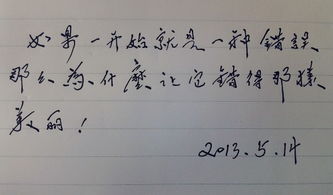 如果一开始就是一种错误
那么為什麼让它錯得那樣
美丽！
2013.5.14